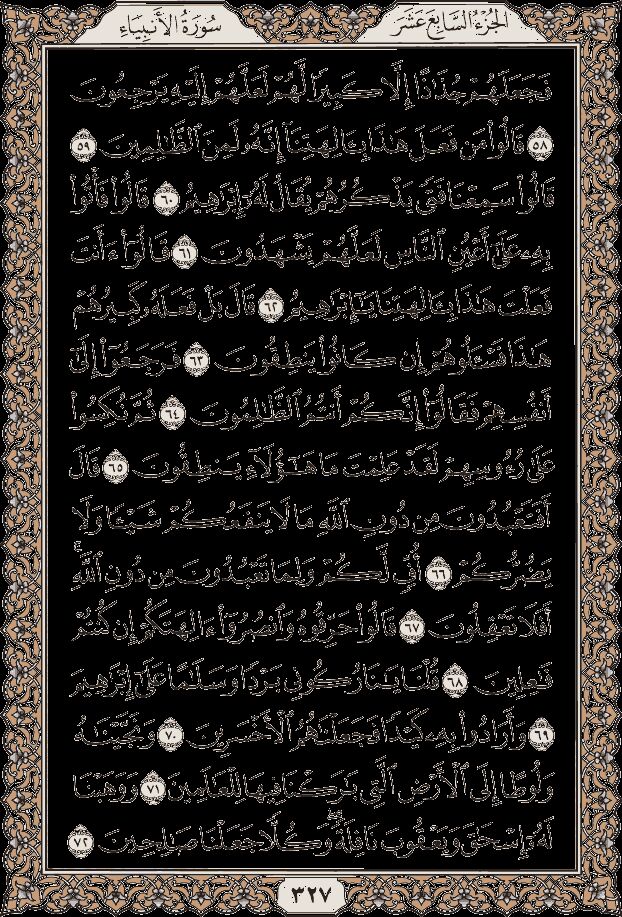 الجزء السابع عشر
سورة الأنبياء
فَجَعَلَهُمْ جُذَٰذًا إِلَّا كَبِيرًا لَّهُمْ لَعَلَّهُمْ إِلَيْهِ يَرْجِعُونَ
٥٨ قَالُوا۟ مَن فَعَلَ هَٰذَا بِـَٔالِهَتِنَآ إِنَّهُۥ لَمِنَ ٱلظَّٰلِمِينَ ٥٩
قَالُوا۟ سَمِعْنَا فَتًى يَذْكُرُهُمْ يُقَالُ لَهُۥٓ إِبْرَٰهِيمُ ٦٠ قَالُوا۟ فَأْتُوا۟
بِهِۦ عَلَىٰٓ أَعْيُنِ ٱلنَّاسِ لَعَلَّهُمْ يَشْهَدُونَ ٦١ قَالُوٓا۟ ءَأَنتَ
فَعَلْتَ هَٰذَا بِـَٔالِهَتِنَا يَٰٓإِبْرَٰهِيمُ ٦٢ قَالَ بَلْ فَعَلَهُۥ كَبِيرُهُمْ
هَٰذَا فَسْـَٔلُوهُمْ إِن كَانُوا۟ يَنطِقُونَ ٦٣ فَرَجَعُوٓا۟ إِلَىٰٓ
أَنفُسِهِمْ فَقَالُوٓا۟ إِنَّكُمْ أَنتُمُ ٱلظَّٰلِمُونَ ٦٤ ثُمَّ نُكِسُوا۟
عَلَىٰ رُءُوسِهِمْ لَقَدْ عَلِمْتَ مَا هَٰٓؤُلَآءِ يَنطِقُونَ ٦٥ قَالَ
أَفَتَعْبُدُونَ مِن دُونِ ٱللَّهِ مَا لَا يَنفَعُكُمْ شَيْـًٔا وَلَا
يَضُرُّكُمْ ٦٦ أُفٍّ لَّكُمْ وَلِمَا تَعْبُدُونَ مِن دُونِ ٱللَّهِۚ
أَفَلَا تَعْقِلُونَ ٦٧ قَالُوا۟ حَرِّقُوهُ وَٱنصُرُوٓا۟ ءَالِهَتَكُمْ إِن كُنتُمْ
فَٰعِلِينَ ٦٨ قُلْنَا يَٰنَارُ كُونِى بَرْدًا وَسَلَٰمًا عَلَىٰٓ إِبْرَٰهِيمَ
٦٩ وَأَرَادُوا۟ بِهِۦ كَيْدًا فَجَعَلْنَٰهُمُ ٱلْأَخْسَرِينَ ٧٠ وَنَجَّيْنَٰهُ
وَلُوطًا إِلَى ٱلْأَرْضِ ٱلَّتِى بَٰرَكْنَا فِيهَا لِلْعَٰلَمِينَ ٧١ وَوَهَبْنَا
لَهُۥٓ إِسْحَٰقَ وَيَعْقُوبَ نَافِلَةًۖ وَكُلًّا جَعَلْنَا صَٰلِحِينَ ٧٢
٣٢٧